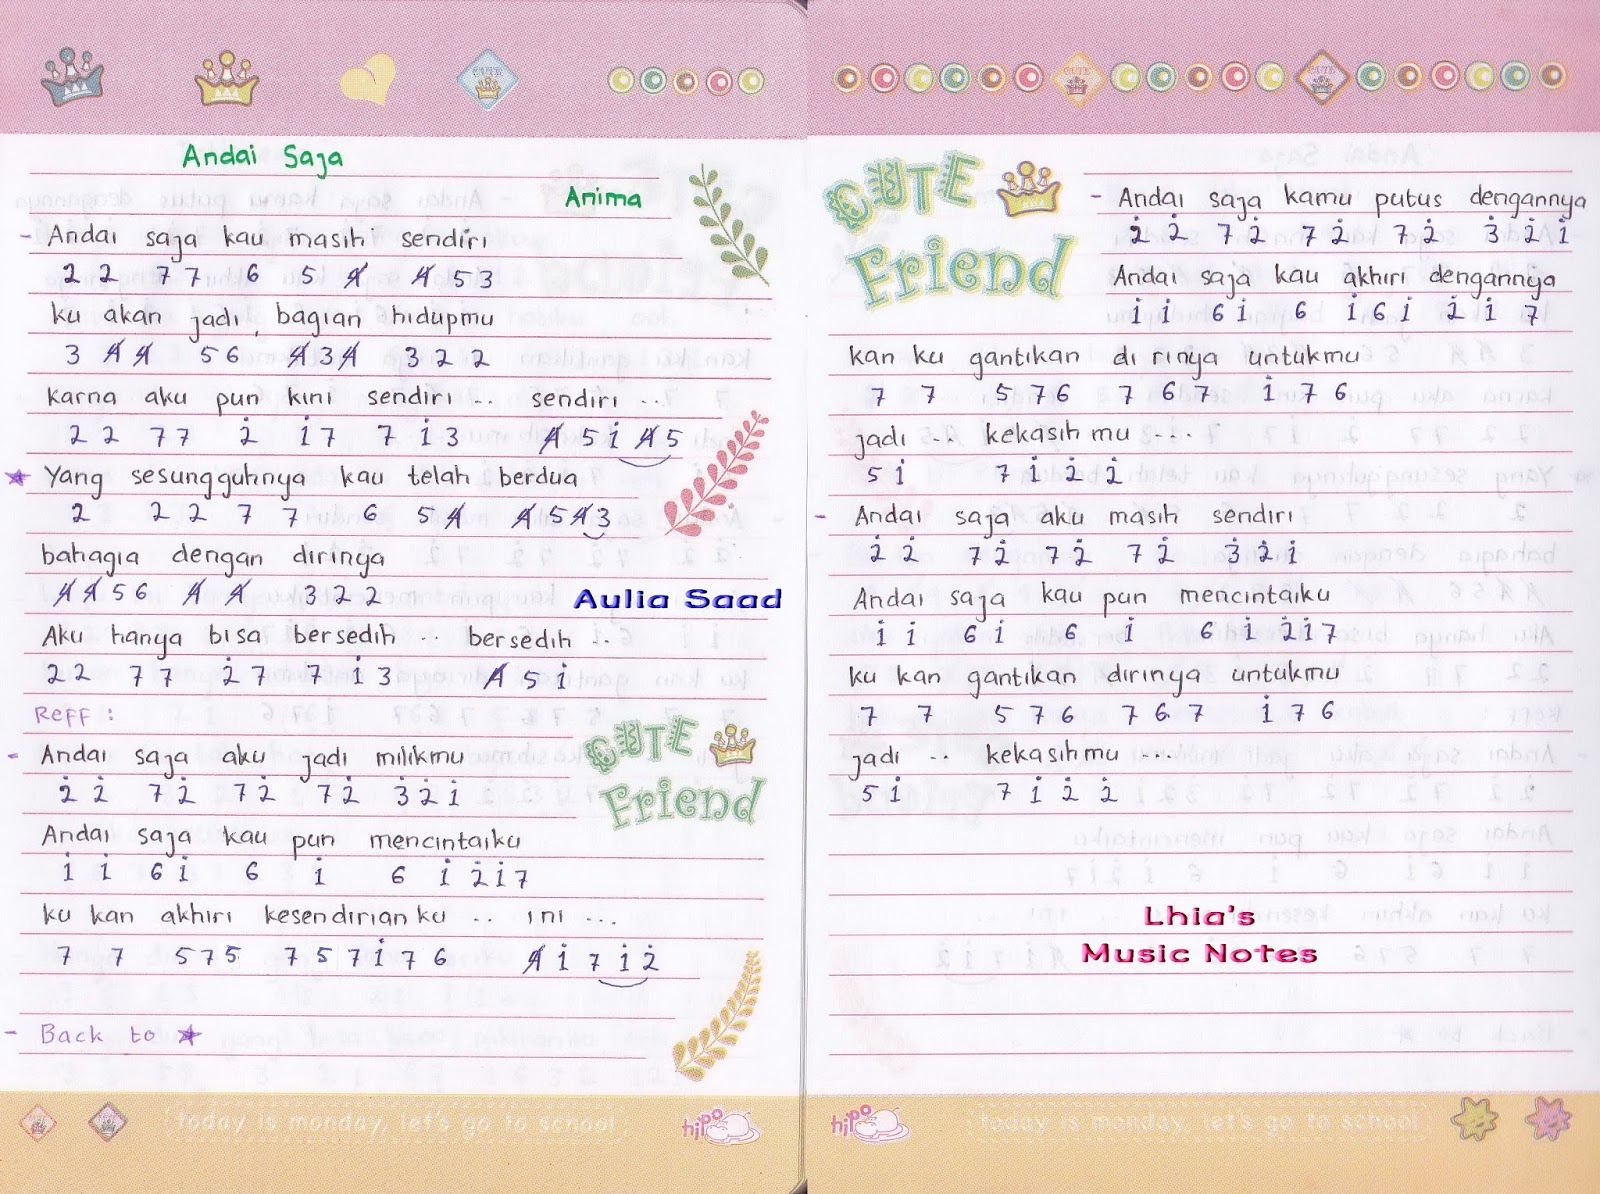 Andai Saja
Anima
- Andai saja kau masih sendiri
2 2 7 7 6 5 4̸ 4̸ 5 3
ku akan jadi, bagian hidupmu
3 4̸ 4̸ 5 6 4̸ 3 4̸ 3 2 2
karna aku pun kini sendiri .. sendiri ...
2 2 7 7 2̇ 1̇ 7 7 1̇ 3 4̸ 5 1̇ 4̸ 5
★ Yang sesungguhnya kau telah berdua
2 2 2 7 7 6 5 4̸ 4̸ 5 4̸ 3
bahagia dengan dirinya
4̸ 4̸ 5 6 4̸ 4̸ 3 2 2
Aulia Saad
Aku hanya bisa bersedih .. bersedih ..
2 2 7 7 2̇ 7 7 1̇ 3 4̸ 5 1̇
Reff :
- Andai saja aku jadi milikmu
2̇ 2̇ 7 2̇ 7 2̇ 7 2̇ 3̇ 2̇ 1̇
Andai saja kau pun mencintaiku
1̇ 1̇ 6 1̇ 6 1̇ 6 1̇ 2̇ 1̇ 7
ku kan akhiri kesendirian ku .. ini ...
7 7 5 7 5 7 5 7 1̇ 7 6 4̸ 1̇ 7 1̇ 2̇
- Back to ★
CUTE
Friend
today is monday, let's go to school
hipo
CUTE
Friend
- Andai saja kamu putus dengannya
2̇ 2̇ 7 2̇ 7 2̇ 7 2̇ 3̇ 2̇ 1̇
Andai saja kau akhiri dengannya
1̇ 1̇ 6 1̇ 6 1̇ 6 1̇ 2̇ 1̇ 7
kan ku gantikan dirinya untukmu
7 7 5 7 6 7 6 7 1̇ 7 6
jadi .. kekasih mu ....
5 1̇ 7 1̇ 2̇ 2̇
- Andai saja aku masih sendiri
2̇ 2̇ 7 2̇ 7 2̇ 7 2̇ 3̇ 2̇ 1̇
Andai saja kau pun mencintaiku
1̇ 1̇ 6 1̇ 6 1̇ 6 1̇ 2̇ 1̇ 7
ku kan gantikan dirinya untukmu
7 7 5 7 6 7 6 7 1̇ 7 6
jadi .. kekasihmu ....
5 1̇ 7 1̇ 2̇ 2̇
Lhia's
Music Notes
hipo
today is monday, let's go to school